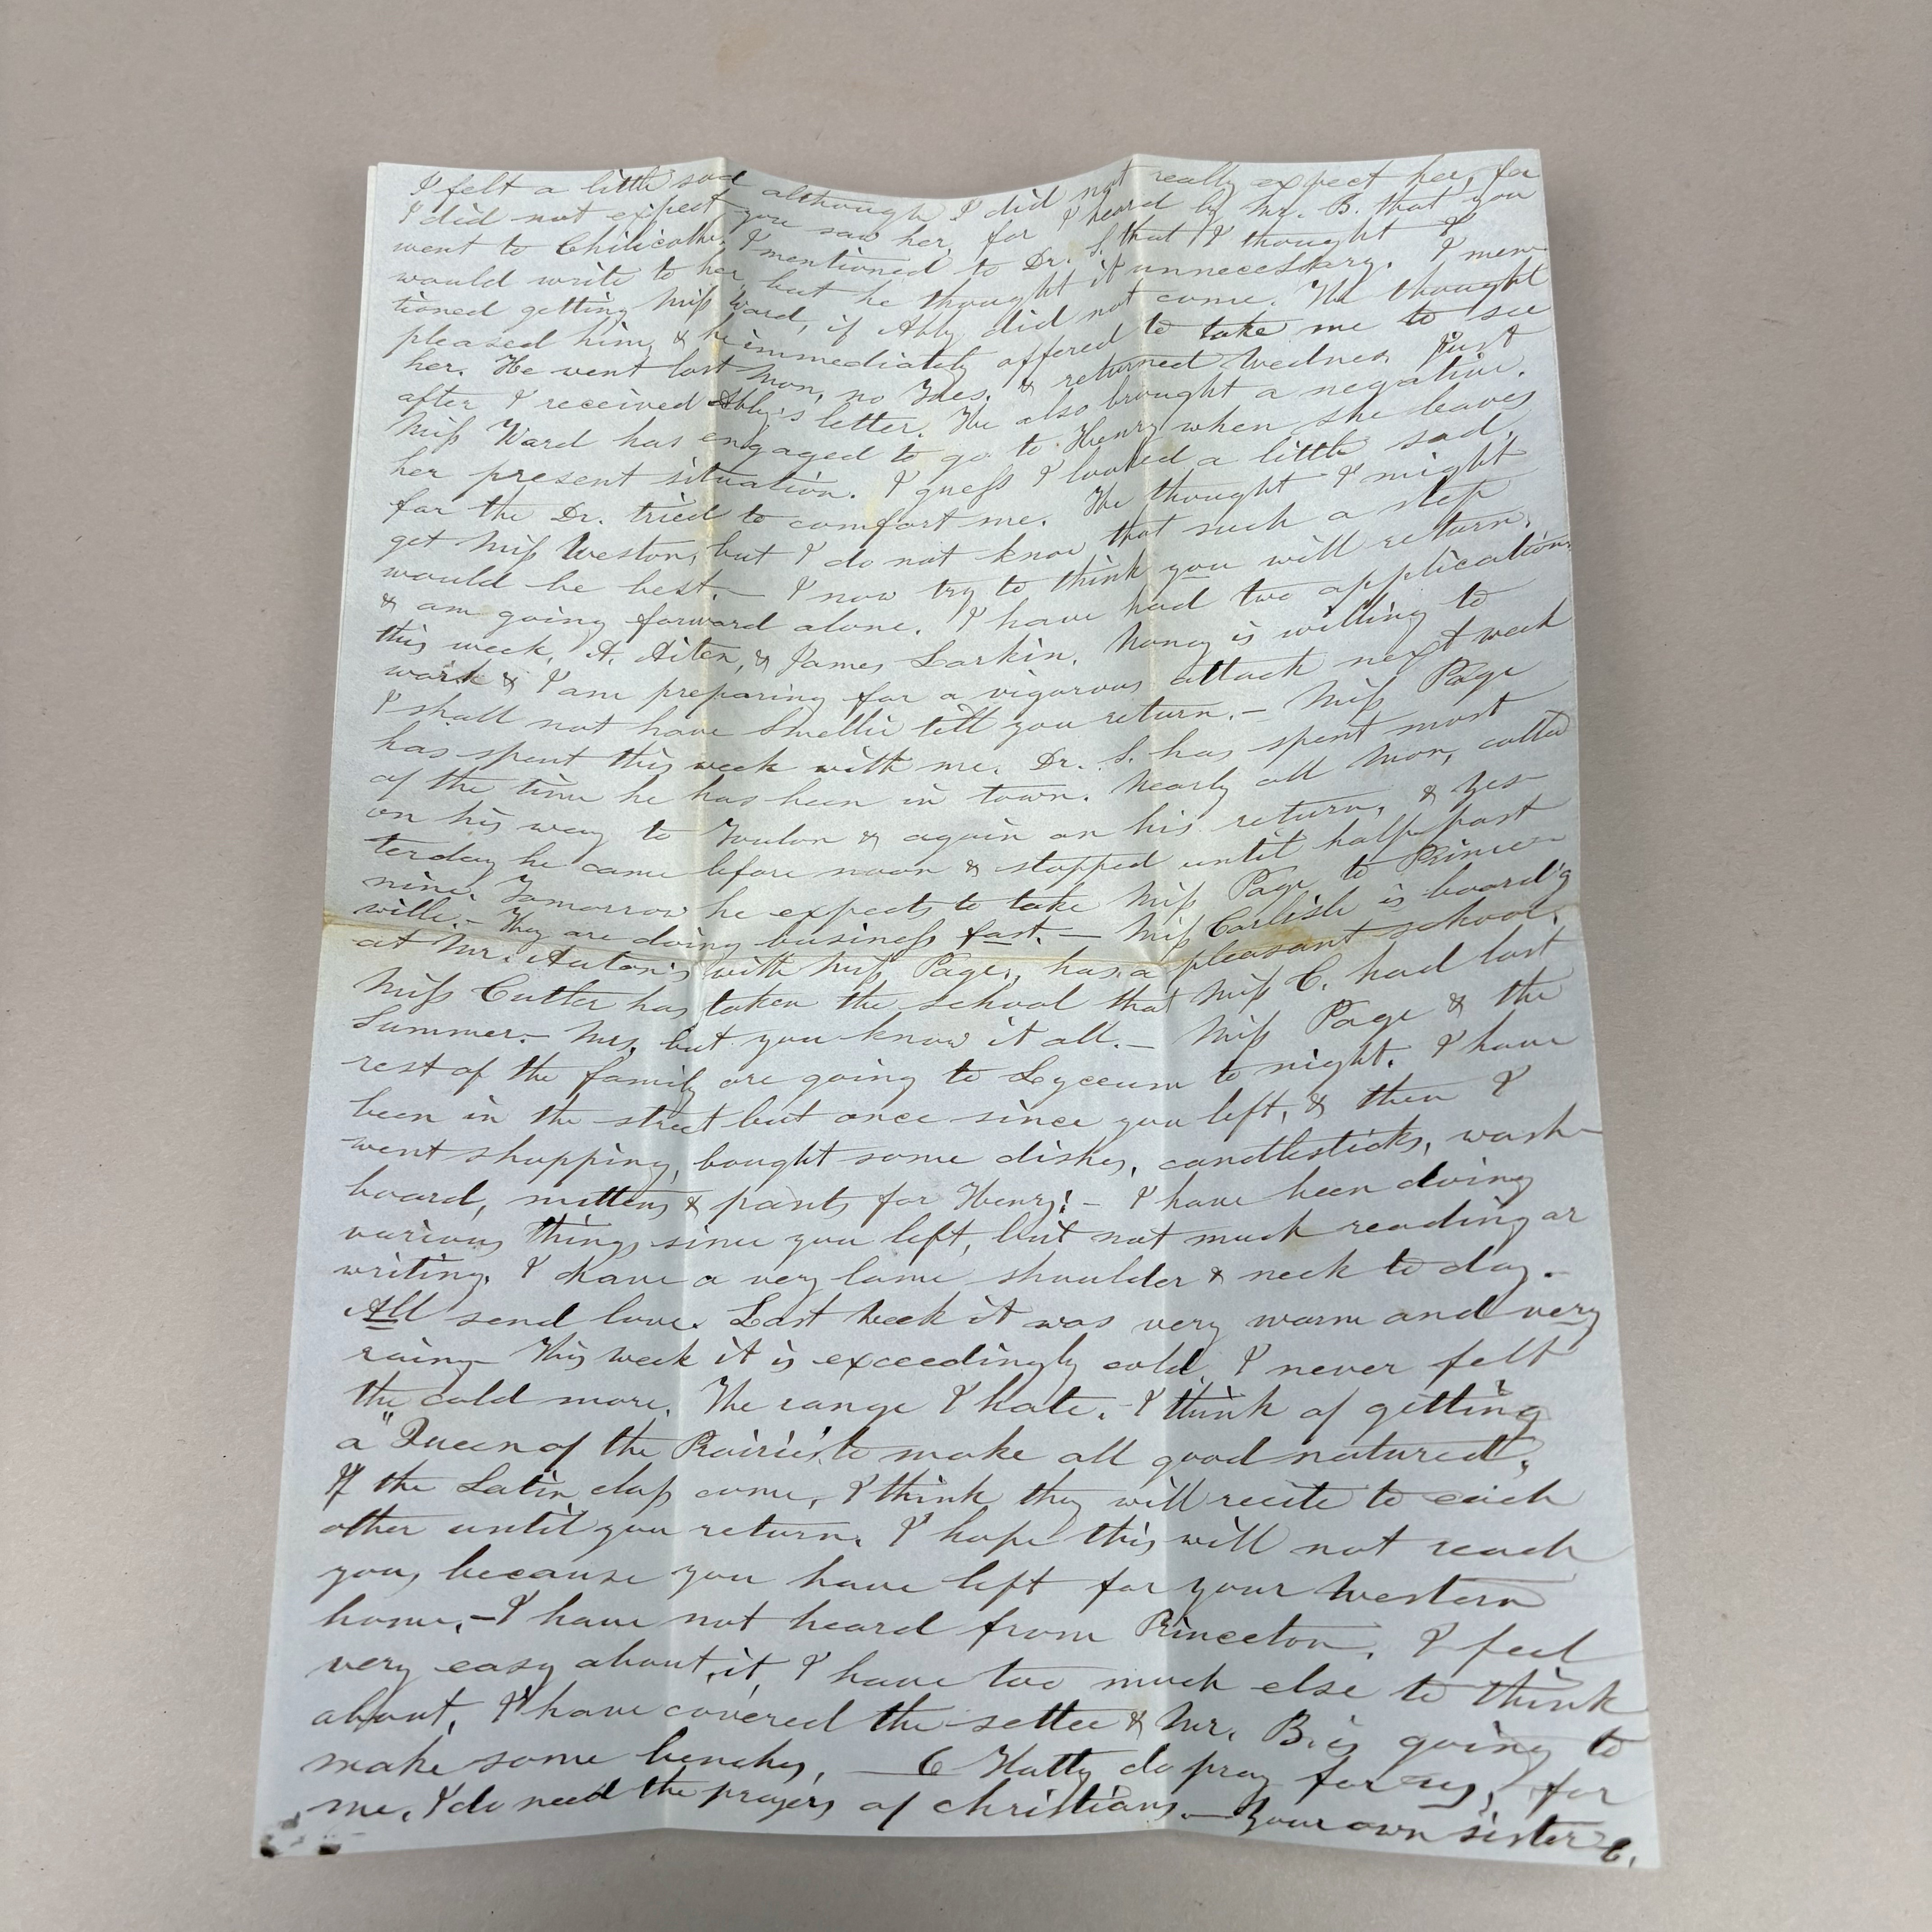 I felt a little sad although I did not really expect her, for
I did not expect you saw her, for I heard by Mr. B. that you
went to Chilicothe. I mentioned to Dr. S. that I thought I
would write to her, but he thought it unnecessary. I men-
tioned getting Miss Ward, if Abby did not come. The thought
pleased him, & he immediately offered to take me to see
her. He went last Mon, no Tues. & returned Wednes. just
after I received Abby's letter. He also brought a negative.
Miss Ward has engaged to go to Henry when she leaves
her present situation. I guess I looked a little sad,
for the Dr. tried to comfort me. He thought I might
get Miss Weston, but I do not know that such a step
would be best. – I now try to think you will return,
& am going forward alone. I have had two applications
this week, A. Aiten, & James Larkin. Nancy is willing to
work & I am preparing for a vigorous attack next week
I shall not have Smellie till you return. – Miss Page
has spent this week with me. Dr. S. has spent most
of the time he has been in town. Nearly all Mon, called
on his way to Toulon & again on his return, & yes-
terday he came before noon & stopped until half past
nine. Tomorrow he expects to take Miss Page to Prince-
ville. – They are doing business fast. – Miss Carlisle is board'g
at Mr. Auton's with Miss Page, has a pleasant school.
Miss Cutler has taken the school that Miss C. had last
Summer. – Mrs. but you know it all. – Miss Page & the
rest of the family are going to Lyceum to night. I have
been in the street but once since you left, & then I
went shopping, bought some dishes, candlesticks, wash-
board, mittens & pants for Henry! – I have been doing
various things since you left, but not much reading or
writing. I have a very lame shoulder & neck to day. –
All send love. Last week it was very warm and very
rainy – This week it is exceedingly cold. I never felt
the cold more. The range I hate. – I think of getting
a "Queen of the Prairies" to make all good natured.
If the Latin class come, I think they will recite to each
other until you return. I hope this will not reach
you, because you have left for your western
home. – I have not heard from Princeton. I feel
very easy about it, I have too much else to think
about. I have covered the settee & Mr. B. is going to
make some benches. — O Hatty do pray for us, for
me, I do need the prayers of christians. — Your own sister C.